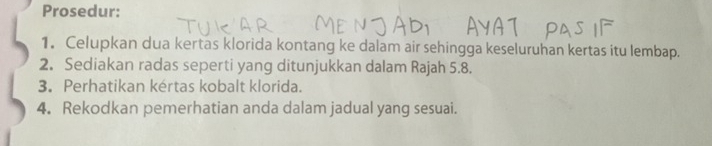 Prosedur:
TUKAR MENJADI AYAT PASIF
1. Celupkan dua kertas klorida kontang ke dalam air sehingga keseluruhan kertas itu lembap.
2. Sediakan radas seperti yang ditunjukkan dalam Rajah 5.8.
3. Perhatikan kertas kobalt klorida.
4. Rekodkan pemerhatian anda dalam jadual yang sesuai.